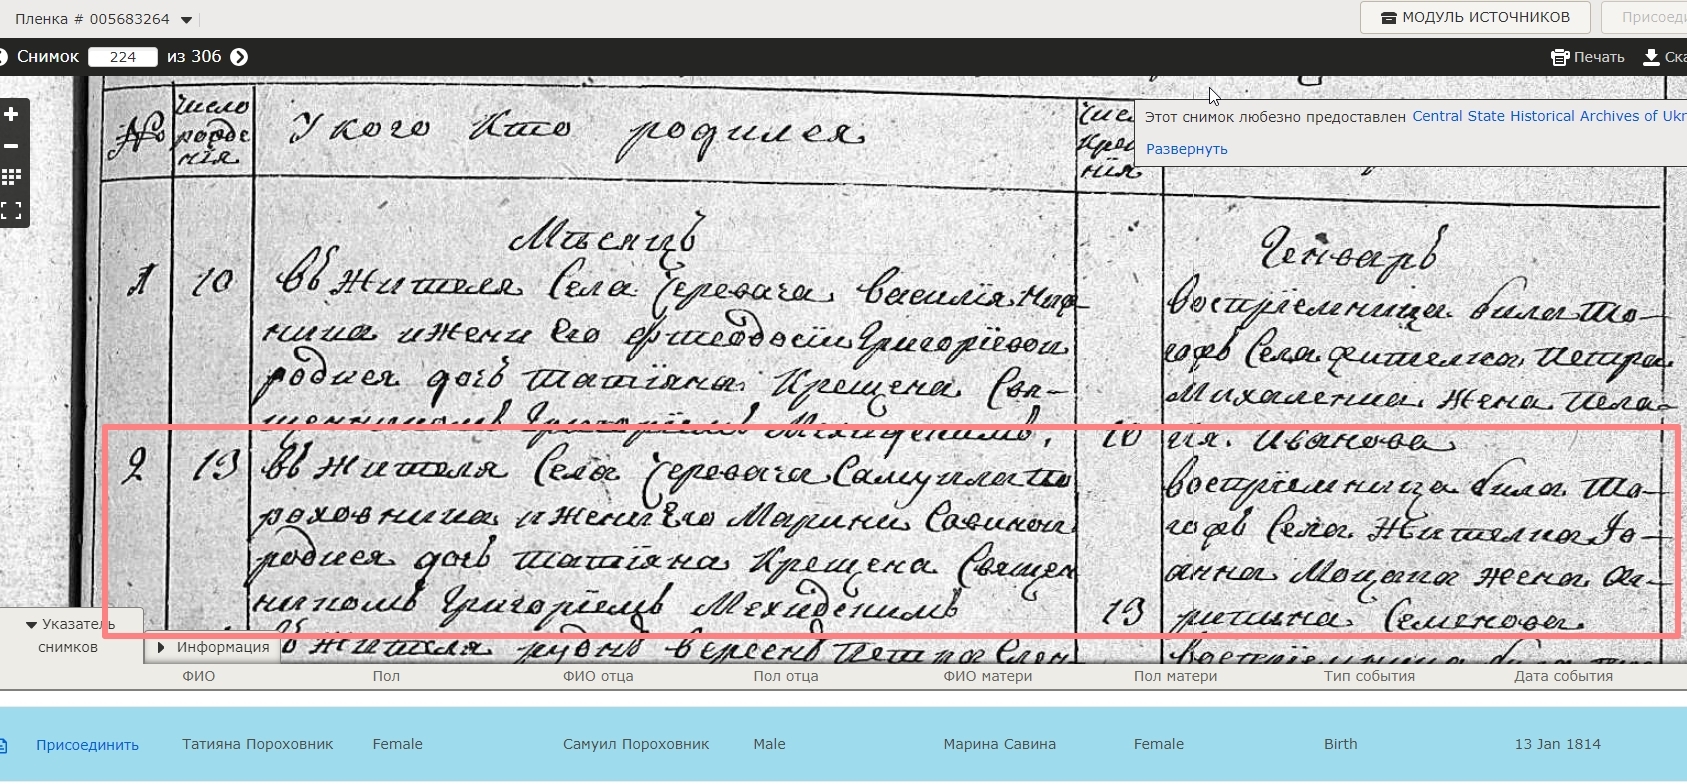 Пленка # 005683264
МОДУЛЬ ИСТОЧНИКОВ
Присоеди
Снимок 224 из 306
Печать
Ска
Этот снимок любезно предоставлен Central State Historical Archives of Ukr
Развернуть
№
Число рожде нїя
У кого Кто родился
Чис
Кре
нїя
Мѣсяцъ
Генварь
1
10
Въ Жителя Села Черевача Василїя
нина и жени Его Григорїевой
родися дочь Татїана Крещена Свя-
щенникомъ Григорїемъ
10
воспрїемница била то-
гожъ Села жителка Петра
жена Пела-
гїя Иванова
2
13
Въ Жителя Села Черевача Самуила По
роховника и жени Его Марини Савиной
родися дочь Татїана Крещена Священ
никомъ Григорїемъ
13
воспрїемница била то-
гожъ Села Жителка Іо-
анна жена Ма-
Семенова
Въ Жителя
Указатель
снимков
Информация
ФИО
Пол
ФИО отца
Пол отца
ФИО матери
Пол матери
Тип события
Дата события
Присоединить
Татияна Пороховник
Female
Самуил Пороховник
Male
Марина Савина
Female
Birth
13 Jan 1814